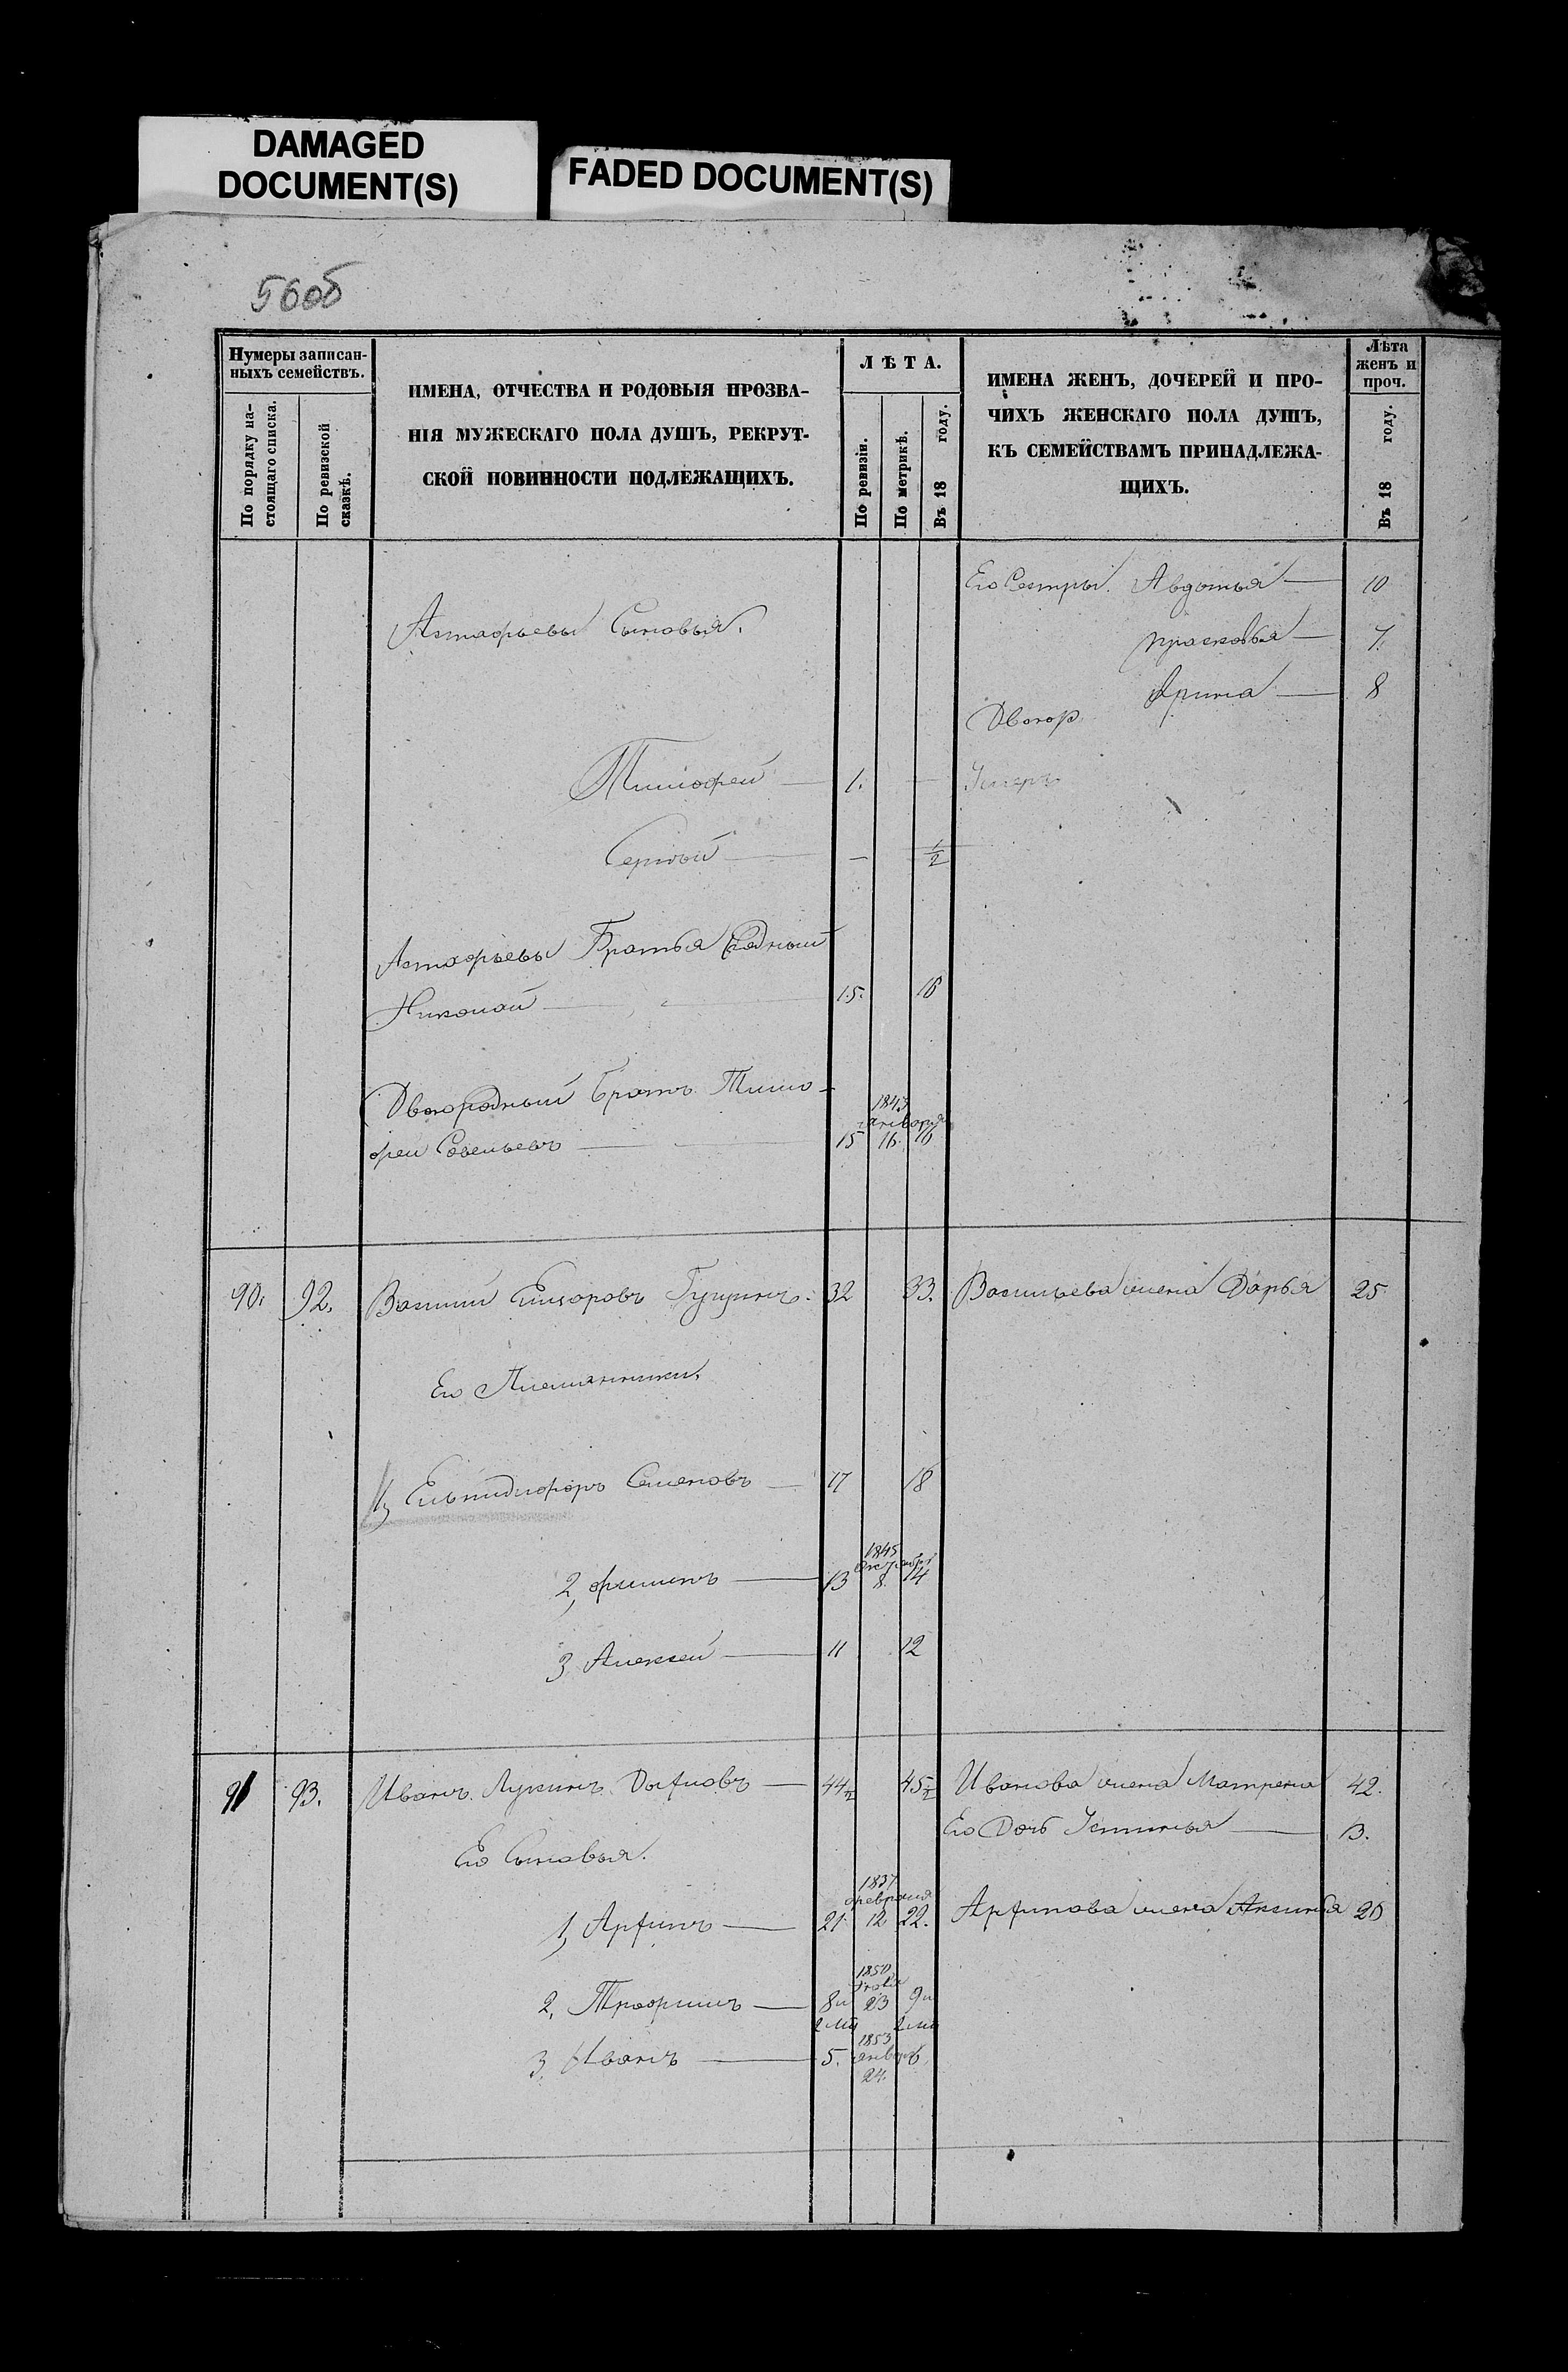 DAMAGED
DOCUMENT(S)
FADED DOCUMENT(S)
56об
Нумеры записан-
ныхъ семействъ.
По порядку на-
стоящаго списка.
По ревизской
сказкѣ.
ИМЕНА, ОТЧЕСТВА И РОДОВЫЯ ПРОЗВА-
НІЯ МУЖЕСКАГО ПОЛА ДУШЪ, РЕКРУТ-
СКОЙ ПОВИННОСТИ ПОДЛЕЖАЩИХЪ.
ЛѢТА.
По ревизіи.
По метрикѣ.
Въ 18 году.
ИМЕНА ЖЕНЪ, ДОЧЕРЕЙ И ПРО-
ЧИХЪ ЖЕНСКАГО ПОЛА ДУШЪ,
КЪ СЕМЕЙСТВАМЪ ПРИНАДЛЕЖА-
ЩИХЪ.
Лѣта
женъ и
проч.
Въ 18 году.
Его Сестры. Авдотья 10
Астафьевы Сыновья.
Прасковья 7.
Арина 8
Двоюр
Тимофей 1. Умеръ
Сергѣй — 1/2
Астафьевы Братья Родный
Николай 15. 16
Двоюродный братъ Тимо-
1843
января
фей Савельевъ 15 16. 16
90. 92. Василий Елизаровъ 32 33. Васильева жена Дарья 25
Его Племянники.
1, Ельпидифоръ Семеновъ 17 18
1845
Октября
2, филипъ 13 8. 14
3 Алексей 11 12
91 93. Иванъ Лукинъ 44 1/2 45 1/2 Иванова жена Матрена 42.
Его Дочь Устинья 13.
Его Сыновья.
1837
февраля
1, Арѳипъ 21. 12 22. Арѳипова жена Аксинья 20
1850
Июля
2, Трофимъ 8и 23 9и
1853
января
3, Иванъ 5. 6
24.